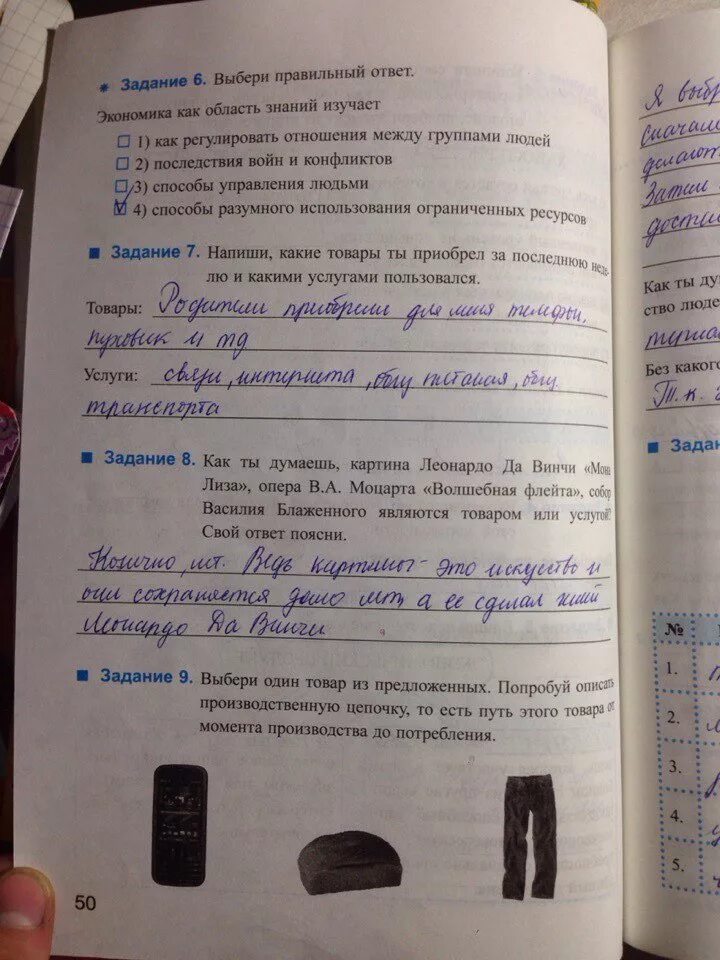 * Задание 6. Выбери правильный ответ.
Экономика как область знаний изучает
1) как регулировать отношения между группами людей
2) последствия войн и конфликтов
3) способы управления людьми
4) способы разумного использования ограниченных ресурсов
Задание 7. Напиши, какие товары ты приобрел за последнюю неде-
лю и какими услугами пользовался.
Товары: Родители приобрели для меня телефон,
пуховик и тд
Услуги: связи, интернета,
транспорта
Задание 8. Как ты думаешь, картина Леонардо Да Винчи «Мона
Лиза», опера В.А. Моцарта «Волшебная флейта», собор
Василия Блаженного являются товаром или услугой?
Свой ответ поясни.
Конечно, Ведь картины - это искусство и
они сохраняется а ее сделал
Леонардо Да Винчи
Задание 9. Выбери один товар из предложенных. Попробуй описать
производственную цепочку, то есть путь этого товара от
момента производства до потребления.
50
Я выбр
сначала
делают
Затем
дости
Как ты ду
ство люде
Без какого
Т.к.
Задан
№
1.
2.
3.
4.
5.